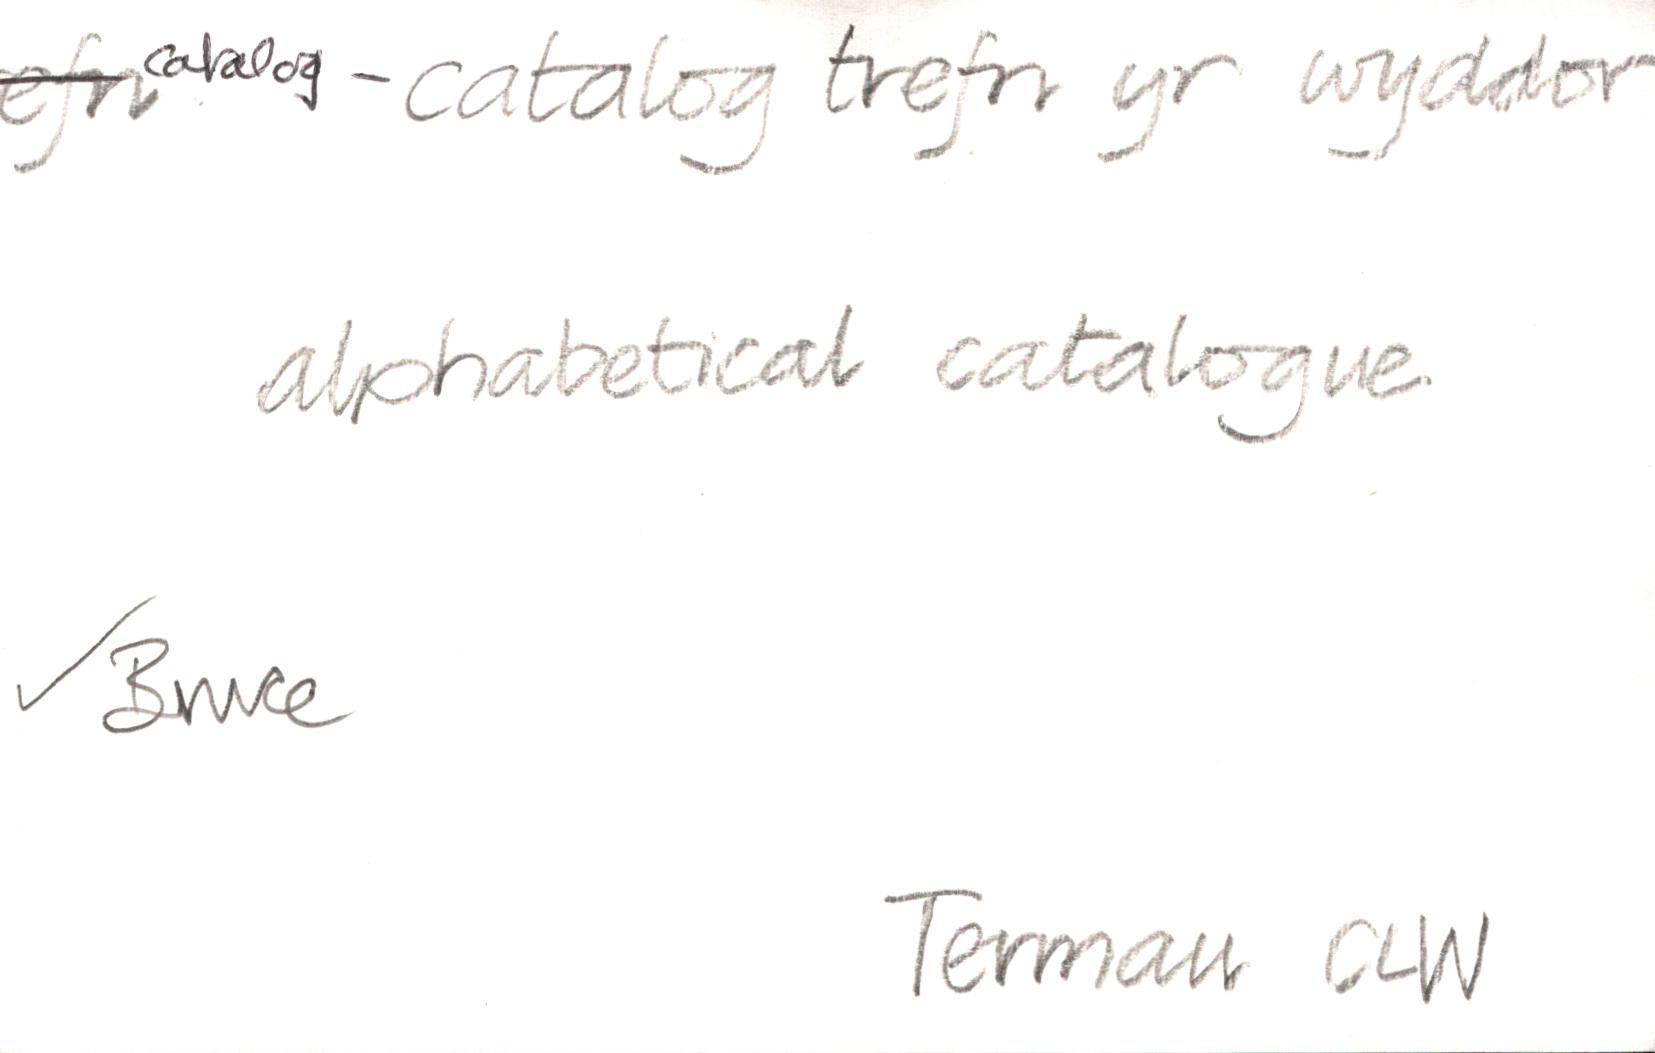 efrn catalog - catalog trefn yr wyddor
alphabetical catalogue
✓ Bruce
Termau CLlW